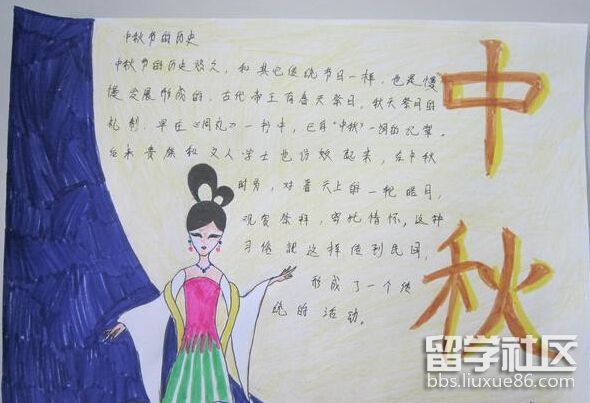 中秋节的历史
中秋节的历史悠久，和其它传统节日一样，也是慢
慢发展形成的。古代帝王有春天祭日，秋天祭月的
礼制，早在《周礼》一书中，已有“中秋”一词的记载。
后来贵族和文人学士也仿效起来，在中秋
时节，对着天上的一轮皓月，
观赏祭拜，寄托情怀，这种
习俗就这样传到民间，
形成了一个传
统的活动。
中秋
留学社区
bbs.liuxue86.com